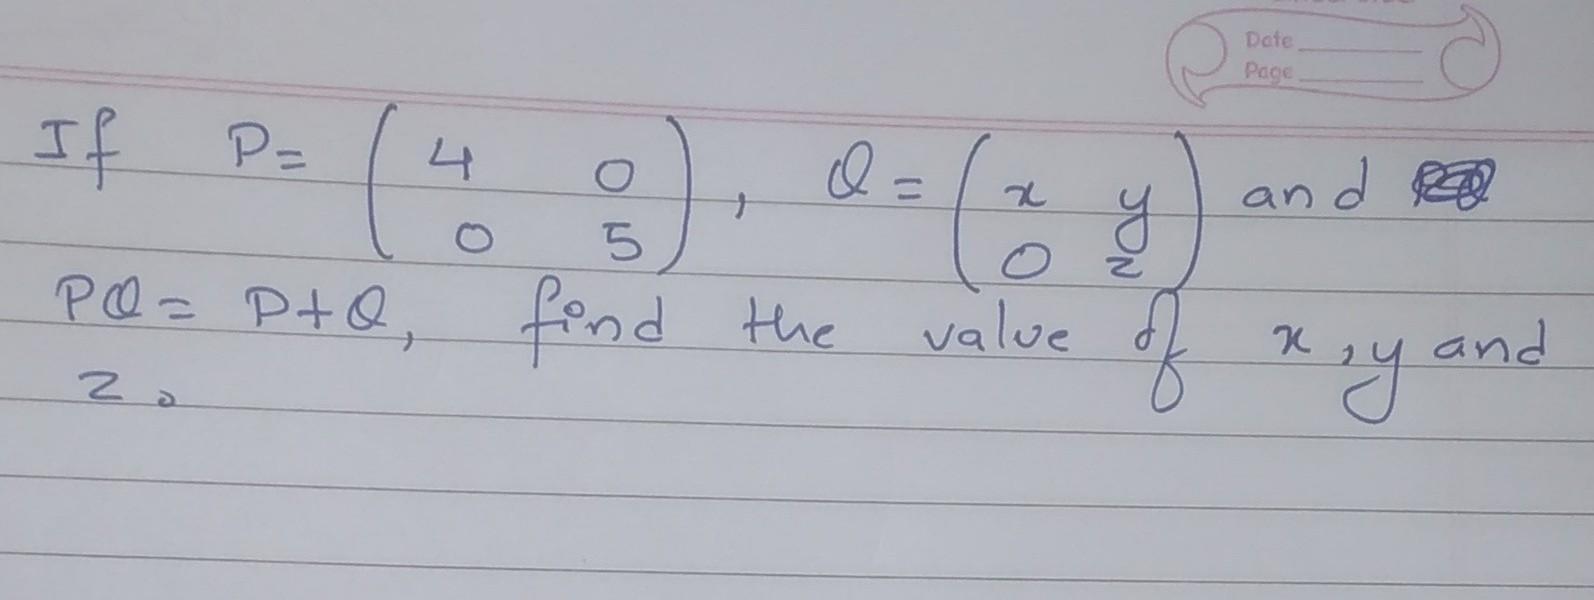 Date
Page
If P= ( 4 0 ), Q = ( x y ) and
( 0 5 ) ( 0 z )
PQ = P+Q, find the value of x, y and
z.